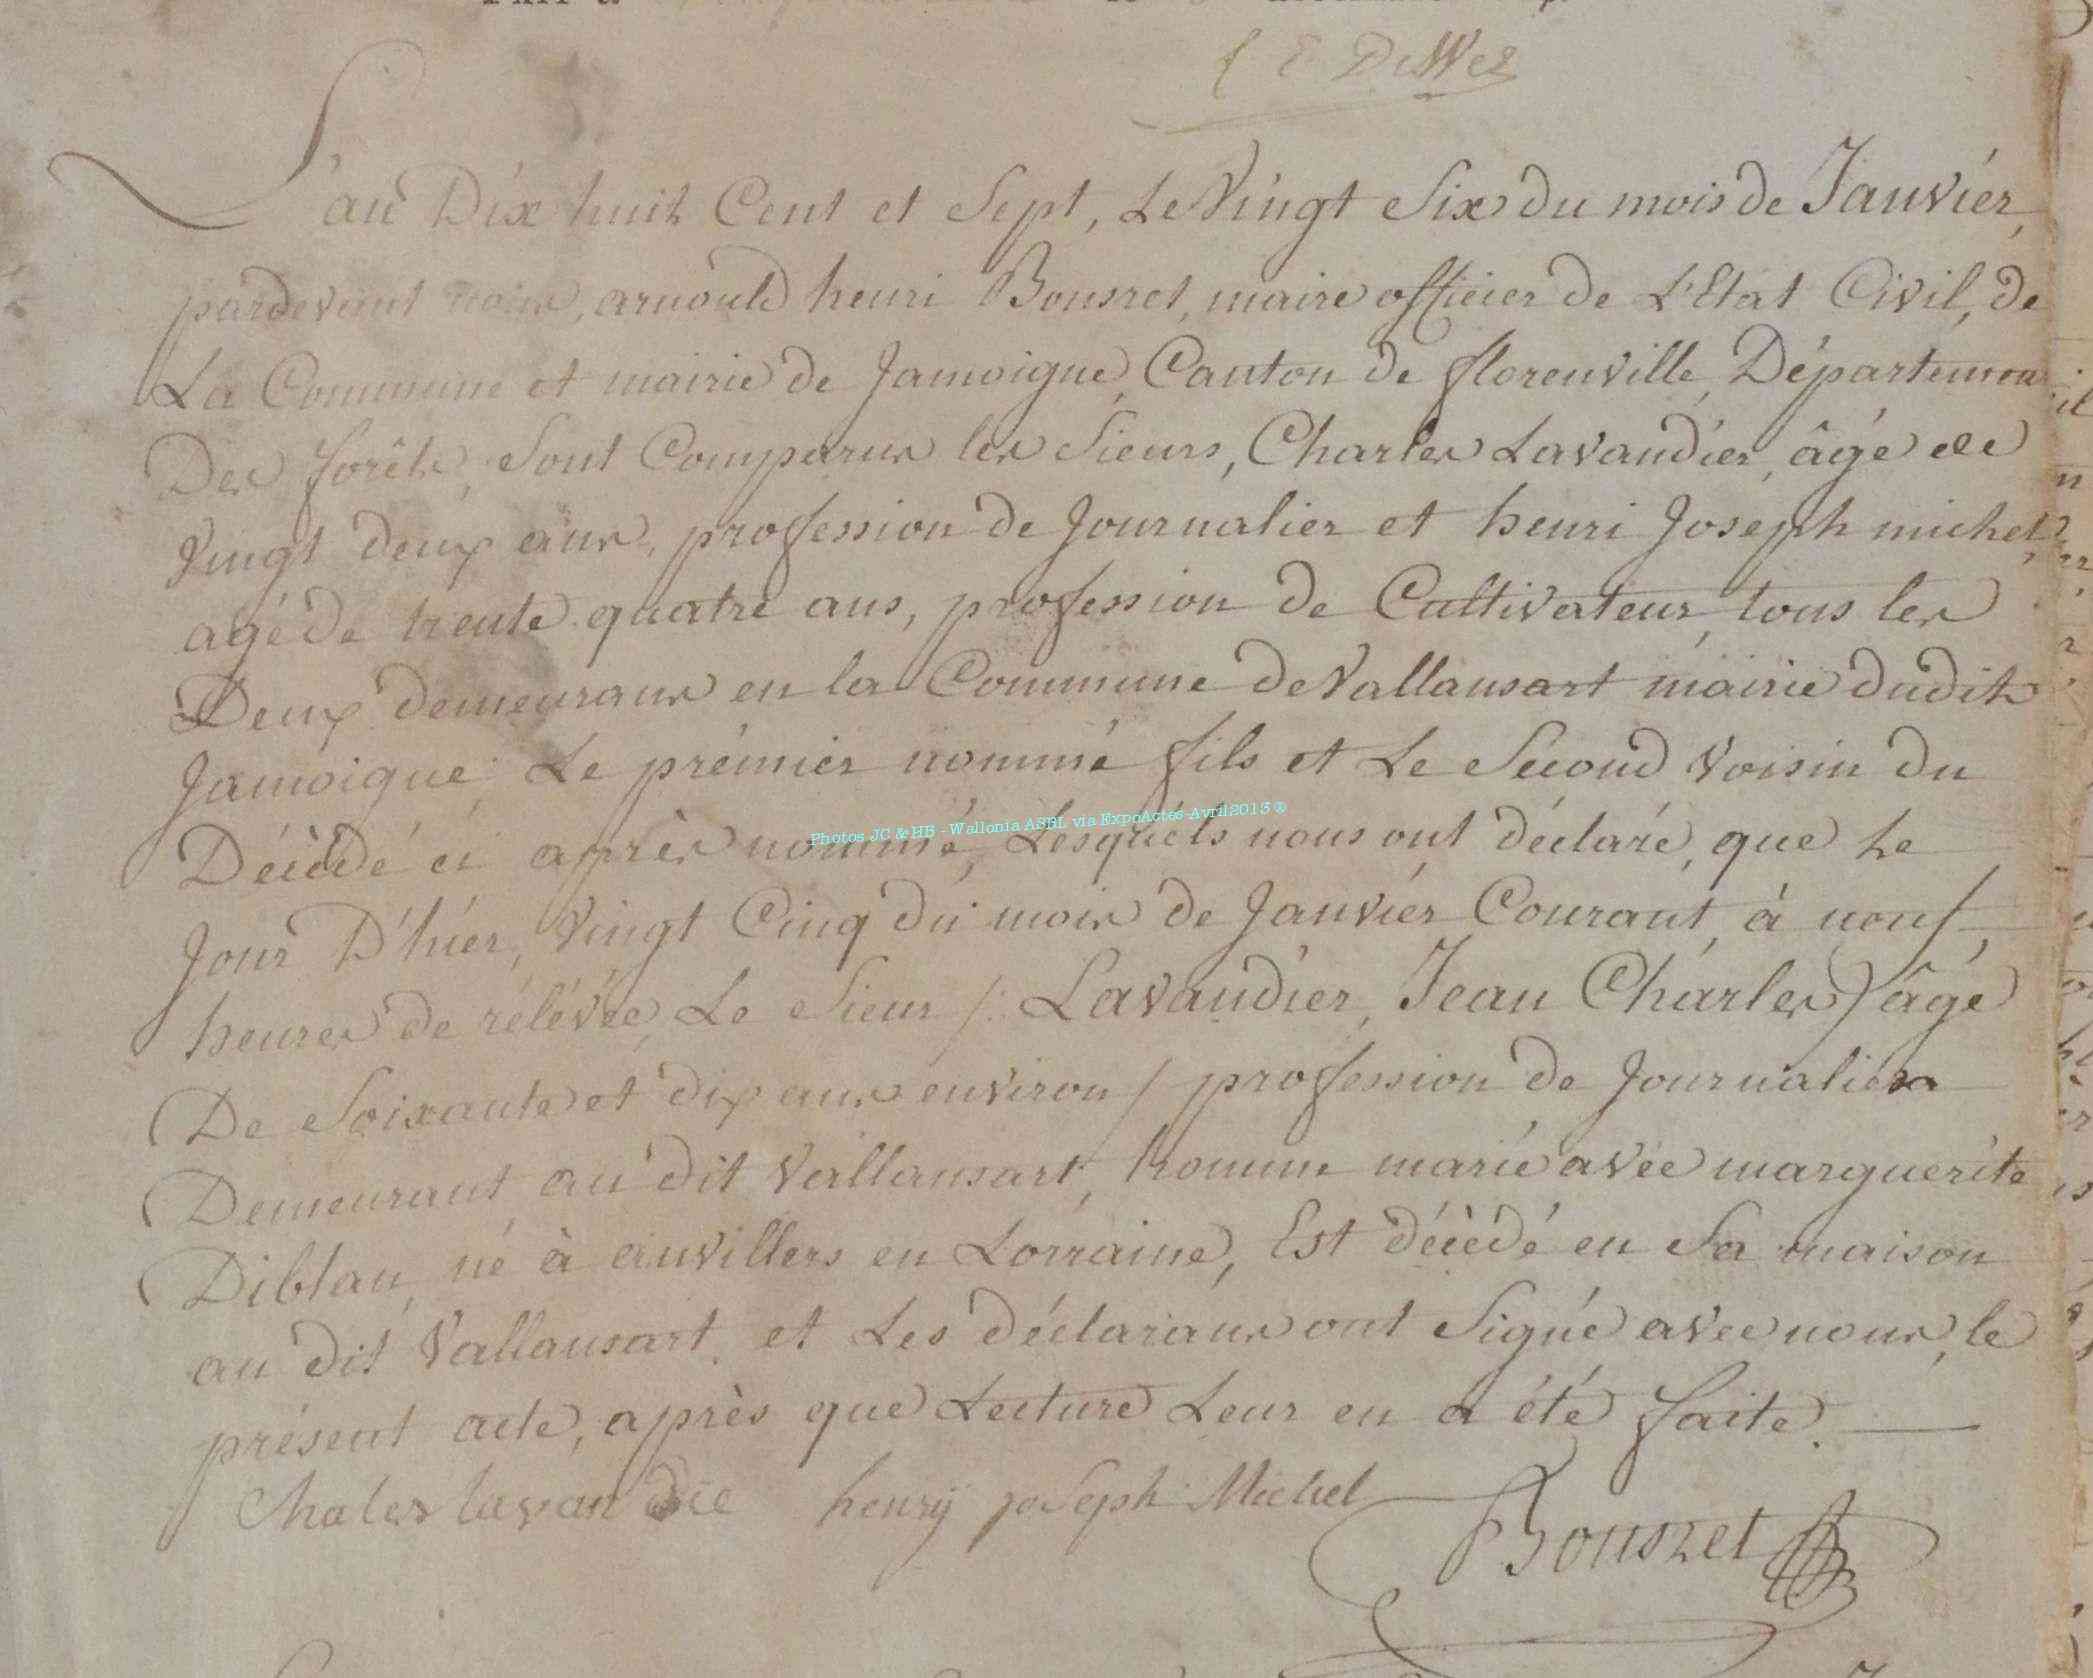 L'an Dix huit Cent et Sept, Le Vingt Six du mois de Janviér,
pardevant nous, arnould henri Bousret, maire officier de L'Etat Civil, de
La Commune et mairie de Jamoigne, Canton de florenville, Départemen
Des forêts, Sont Comparus les Sieurs, Charles Lavandiér, âgé de
Vingt deux ans, profession de Journalier et henri Joseph michel,
agé de trente quatre ans, profession de Cultivateur, tous les
Deux demeurans en la Commune de Vallansart mairie dudit
Jamoigne, Le prémier nommé fils et Le Sécond voisin du
Décèdé ci après nommé, Lesquels nous ont déclaré, que he
Jour D'hiér, vingt Cinq du mois de Janviér Courant, à neuf,
heures de rélévée, Le Sieur /: Lavandiér, Jean Charles) âgé
De Soixante et dix ans environ / profession de Journalier
Demeurant au dit Vallansart, homme marié avec marguerite
Diblan, né à auvillers en Lorraine, Est décèdé en Sa maison
au dit Vallansart. et Les déclarans ont Signé avec nous, le
présent acte, après que Lecture Leur en a été faite.
Chales lavandie henrÿ joseph Michel
Bousret
Photos JC & HB - Wallonia ASBL via ExpoActes-Avril2013 ®